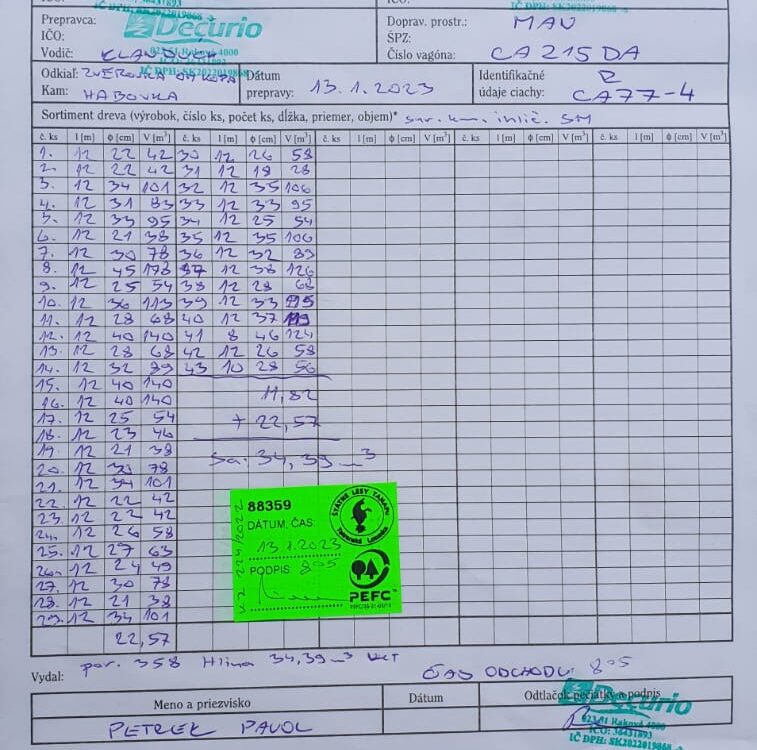 IČO:
IČO:
IČ DPH: SK2022019868
IČ DPH: SK2022019868
Prepravca:
Decurio
Doprav. prostr.: MAN
IČO:
ŠPZ:
Vodič:
023 51 Raková 4000
Číslo vagóna: CA 215 DA
IČ DPH: SK2022019868
Odkiaľ: ZVEROVKA
Dátum
Identifikačné
Kam: HABOVKA
prepravy: 13.1.2023
údaje ciachy: CA77-4
Sortiment dreva (výrobok, číslo ks, počet ks, dĺžka, priemer, objem)* SM
č. ks l [m] ϕ [cm] V [m³] č. ks l [m] ϕ [cm] V [m³] č. ks l [m] ϕ [cm] V [m³] č. ks l [m] ϕ [cm] V [m³] č. ks l [m] ϕ [cm] V [m³]
1. 12 22 42 30 12 26 58
2. 12 22 42 31 12 19 28
3. 12 34 101 32 12 35 106
4. 12 31 83 33 12 33 95
5. 12 33 95 34 12 25 54
6. 12 21 38 35 12 35 106
7. 12 30 78 36 12 32 89
8. 12 45 178 37 12 38 126
9. 12 25 54 38 12 28 68
10. 12 36 113 39 12 33 95
11. 12 28 68 40 12 37 119
12. 12 40 140 41 8 46 124
13. 12 28 68 42 12 26 58
14. 12 32 89 43 10 28 56
15. 12 40 140
11,82
16. 12 40 140
17. 12 25 54
+ 22,57
18. 12 23 46
19. 12 21 38
Sa: 34,39 m³
20. 12 30 78
21. 12 34 101
22. 12 22 42
23. 12 22 42
24. 12 26 58
25. 12 27 63
26. 12 24 49
27. 12 30 78
28. 12 21 38
29. 12 34 101
22,57
88359
DÁTUM, ČAS:
13.1.2023
PODPIS: 805
ŠTÁTNE LESY TANAPU
Tatranská Lomnica
PEFC
V2 224/2022
Vydal: por. 358 Hlina 34,39 m³ VKT
ČAS ODCHODU: 805
Meno a priezvisko
Dátum
Odtlačok pečiatky a podpis
Decurio
PETREK PAVOL
023 51 Raková 4000
IČO: 36431893
IČ DPH: SK2022019868